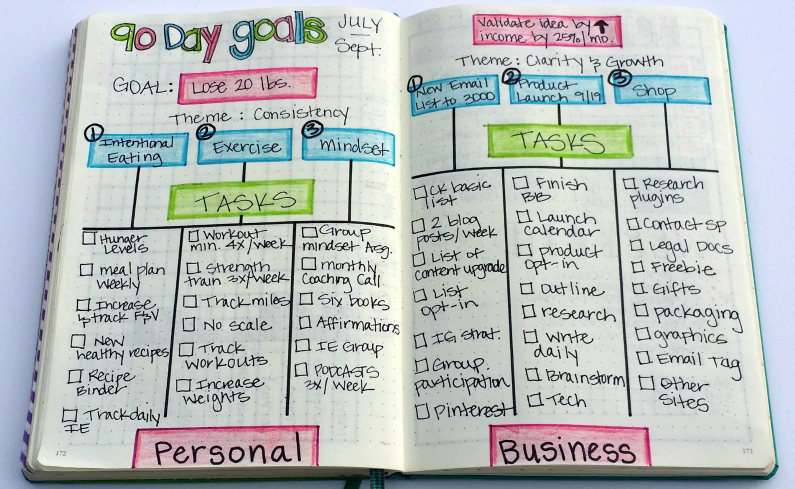 90 Day goals
JULY
—
Sept.
GOAL: Lose 20 lbs.
Theme: Consistency
① Intentional
Eating
② Exercise
③ Mindset
TASKS
Hunger
Levels
meal plan
weekly
Increase
& track F&V
New
healthy recipes
Recipe
Binder
Track daily
IE
Workout
min. 4x/week
Strength
train 3x/week
Track miles
No scale
Track
workouts
Increase
weights
Group
mindset Asg.
monthly
Coaching Call
Six books
Affirmations
IE Group
PODCASTS
3x/week
Personal
172
Validate idea by ↑
income by 25%/mo.
Theme: Clarity & Growth
① New Email
List to 3000
② Product
Launch 9/19
③ Shop
TASKS
CK basic
list
2 blog
posts/week
List of
content upgrade
List
opt-in
IG strat.
Group
participation
Pinterest
Finish
BB
Launch
calendar
product
opt-in
Outline
research
Write
daily
Brainstorm
Tech
Research
plugins
Contact SP
Legal Docs
Freebie
Gifts
packaging
graphics
Email Tag
Other
Sites
Business
173